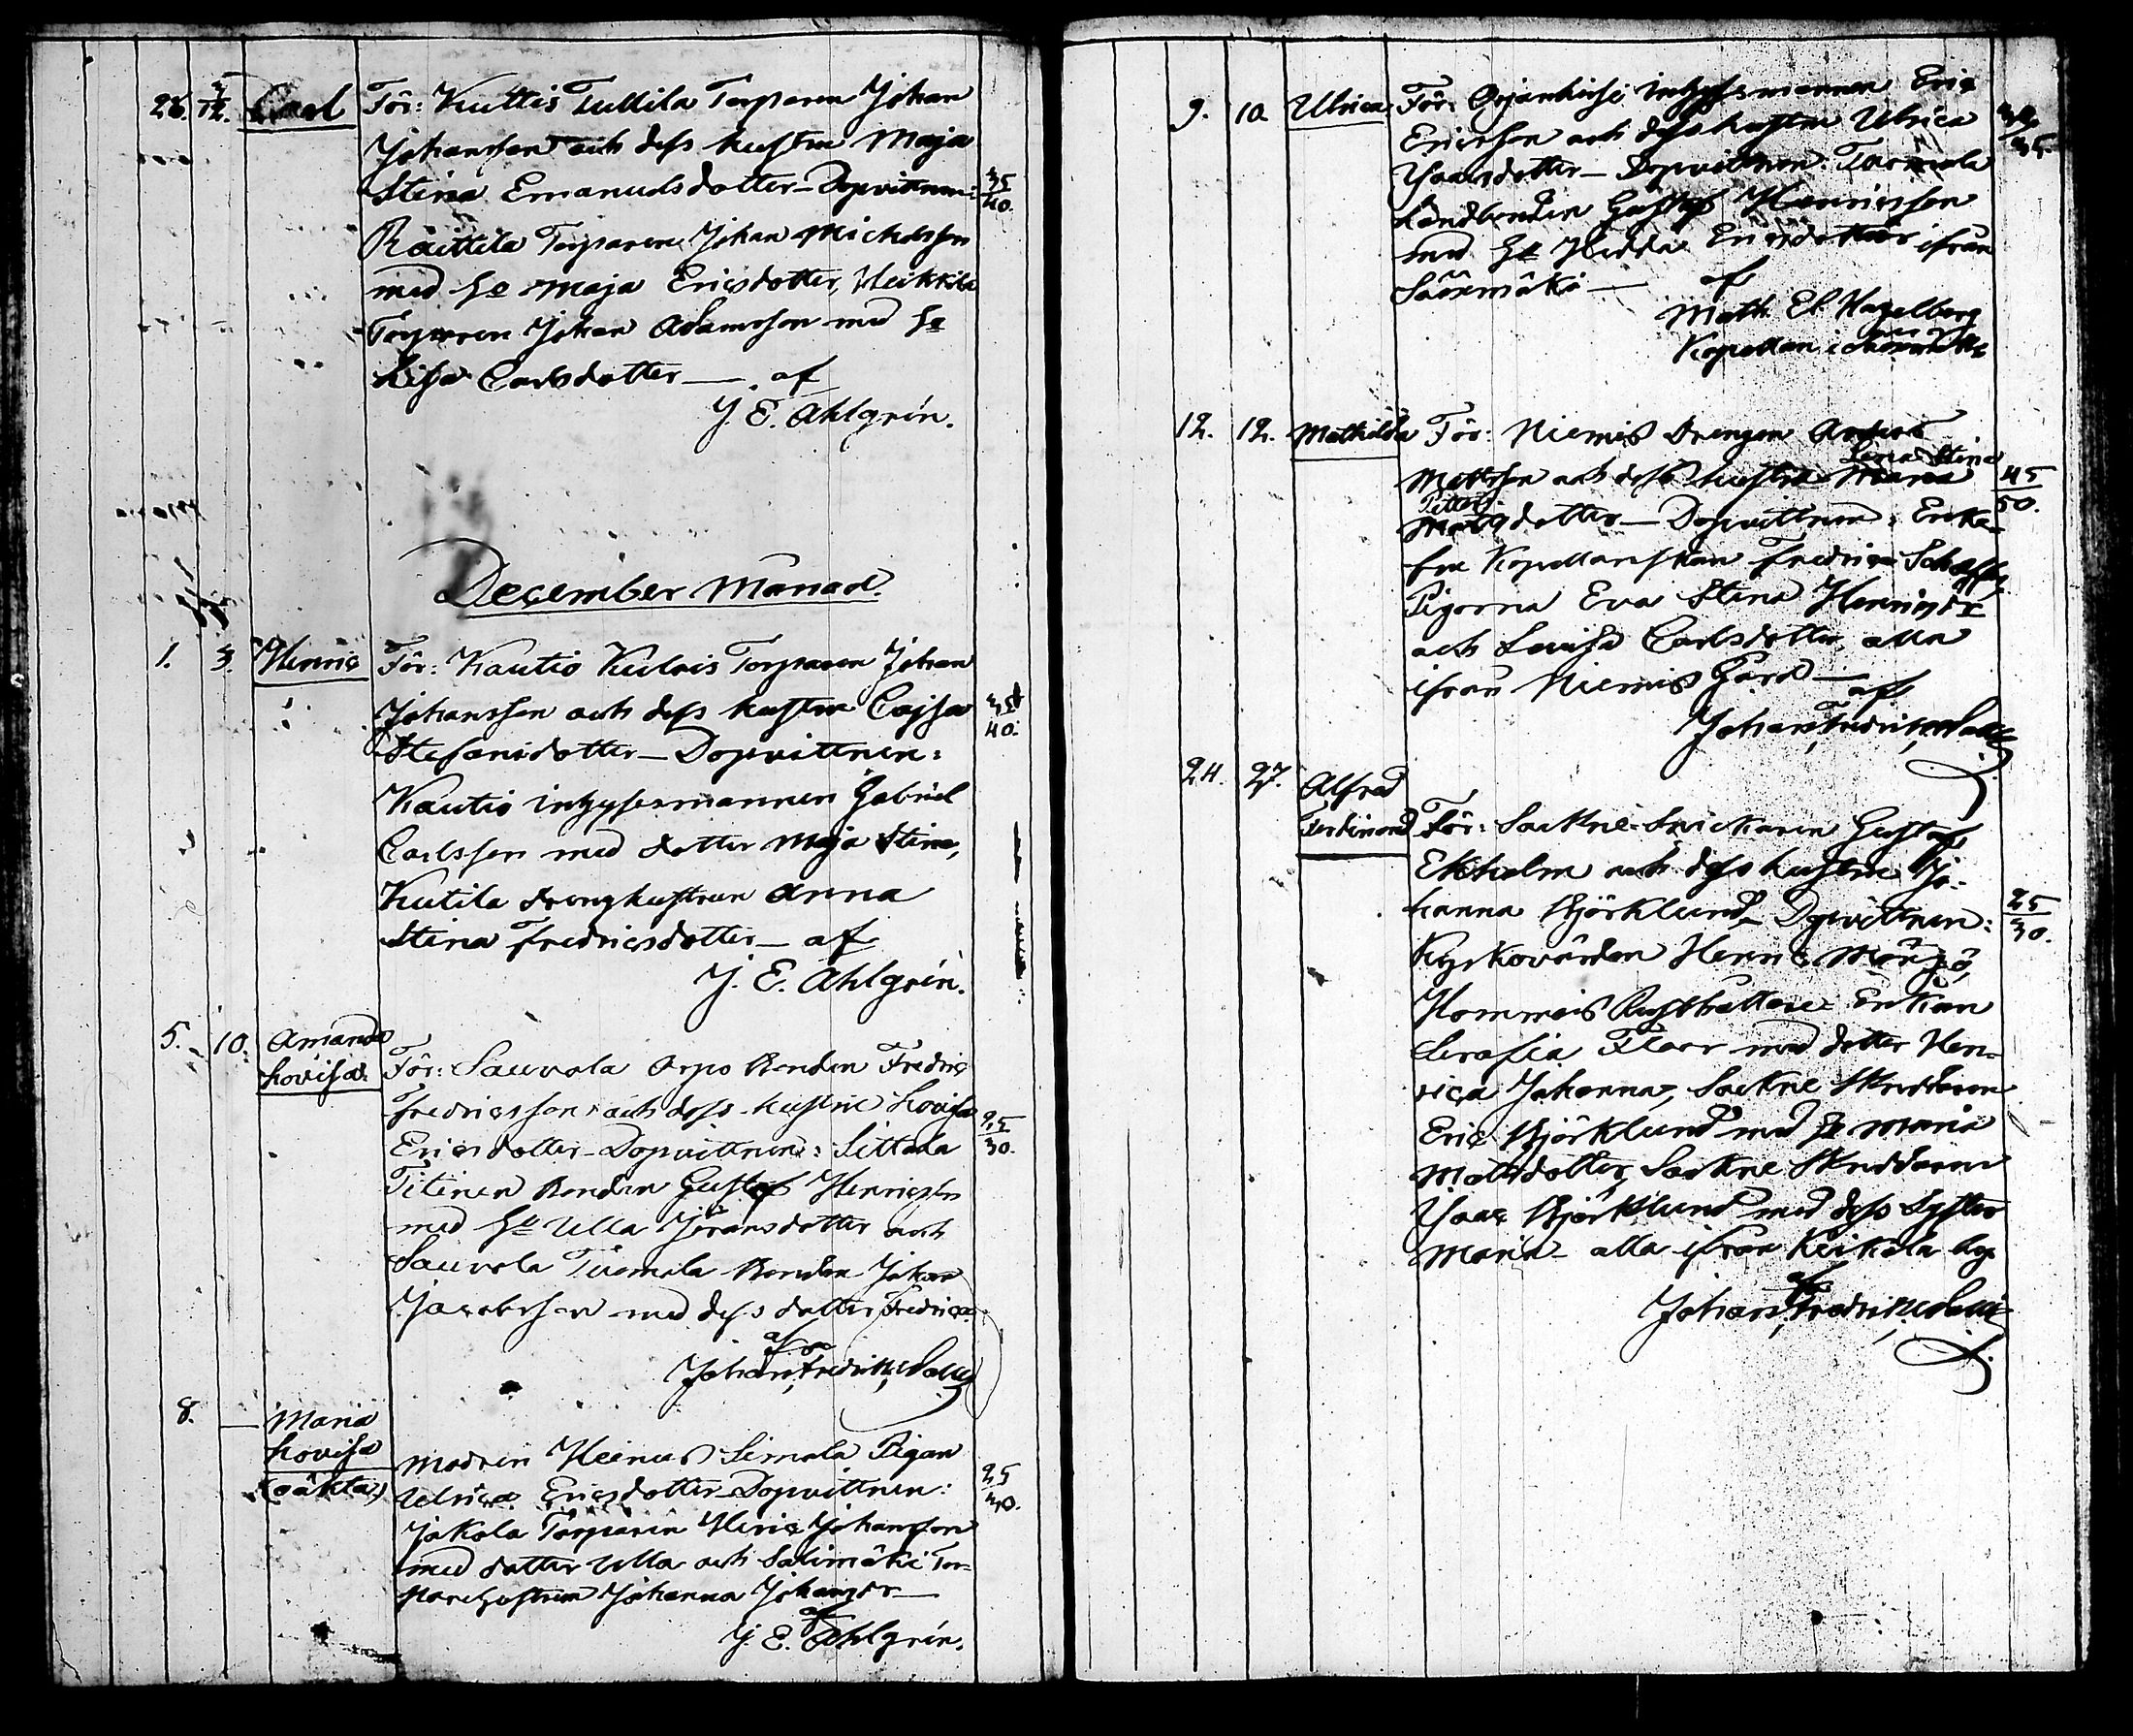 26. 3/12. Carl För: Kuttis Tullila Torparen Johan
Johansson och dess hustru Maja
Stina Emanuelsdotter - Dopvittnen: 35/40.
Räittilä Torparen Johan Michelsson
med Ho Maja Ericsdotter, Heikkilä
Torparen Johan Adamsson med Ho
Lisa Carlsdotter — af
J. E. Ahlgrén.
December Månad.
1. 3. Henric För: Kautio Torparen Johan
Johansson och dess hustru Cajsa 35/40.
Stefansdotter - Dopvittnen:
Kautio inhysesmannen Gabriel
Carlsson med dotter Maja Stina,
Kutila drenghustrun Anna
Stina Fredricsdotter - af
J. E. Ahlgrén.
5. 10. Amanda
Lovisa. För: Sauvola Arpo Bonden Fredric
Fredricsson och dess hustru Lovisa
Ericsdotter - Dopvittnen: 25/30.
Bonden Gustaf Henricsson
med Ho Ulla Göransdotter och
Sauvola Tuomala Bonden Johan
Jacobsson med dess dotter Fredrica.
af
Johan Fredrik
8. — Maria
Lovisa
(oäkta) Modren Simola Pigan
Ulrica Ericsdotter - Dopvittnen: 25/30.
Jakola Torparen Henric Johansson
med dotter Ulla och Salimäki Tor-
parehustrun Johanna Johansdr —
af
J. E. Ahlgrén.
9. 10. Ulrica. För: inhysesmannen Eric
Ericsson och dess hustru Ulrica
Isaacsdotter - Dopvittnen: Tuomola
Landbonden Gustaf Henricsson
med Ho Hedda Ericsdotter ifrån
Sääxmäki — af
Math. El. Hagelberg
Kapellan i
12. 12. Mathilda För: Niemis Drengen Anders
Lena Stina
Mattsson och dess hustru Maria 45/50.
Petters
Matsdotter - Dopvittnen: Enke-
fru Kapellanskan Fredrica
Pigorna Eva Stina Henricsdr
och Lovisa Carlsdotter, alla
ifrån Niemis Gård —
af
Johan Fredrik
24. 27. Alfred
Ferdinand För: Sockne Snickaren Gustaf
Ekholm och dess hustru Jo-
hanna Björklund - Dopvittnen: 25/30.
Kyrkovärden Henric
Rusthållare Enkan
Serafia Floor med dotter Hen-
rica Johanna, Sockne Skräddaren
Eric Björklund med Ho Maria
Matsdotter, Sockne Skräddaren
Isaac Björklund med dess Syster
Maria - alla ifrån Keikala by.
af
Johan Fredrik